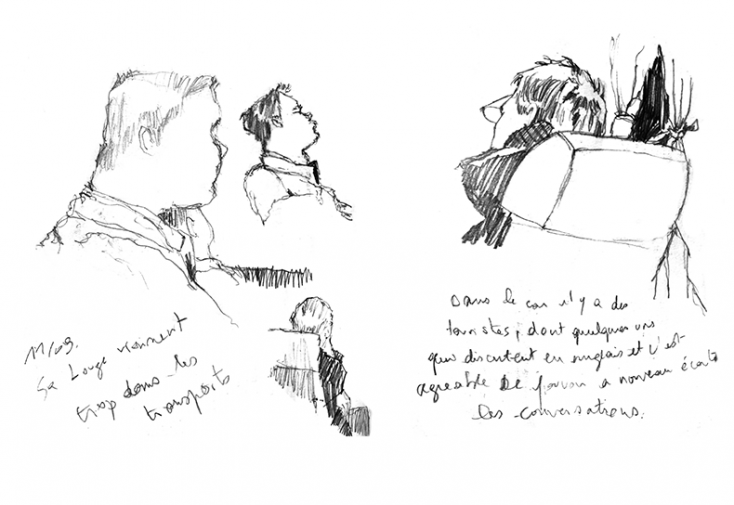 11/09.
Ça bouge vraiment
trop dans les
transports
Dans le car il y a des
touristes, dont quelques uns
qui discutent en anglais et c'est
agréable de pouvoir à nouveau écouter
les conversations.